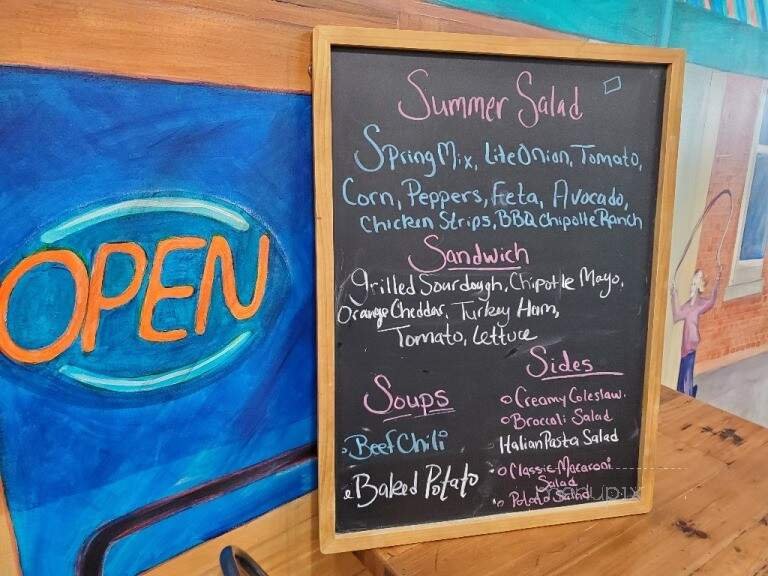 OPEN
Summer Salad
Spring Mix, Lite Onion, Tomato,
Corn, Peppers, Feta, Avocado,
Chicken Strips, BBQ Chipotle Ranch
Sandwich
grilled Sourdough, Chipotle Mayo,
Orange Cheddar, Turkey Ham,
Tomato, Lettuce
Soups
Beef Chili
Baked Potato
Sides
Creamy Coleslaw.
Broccoli Salad
Italian Pasta Salad
Classic Macaroni
Salad
Potato Salad